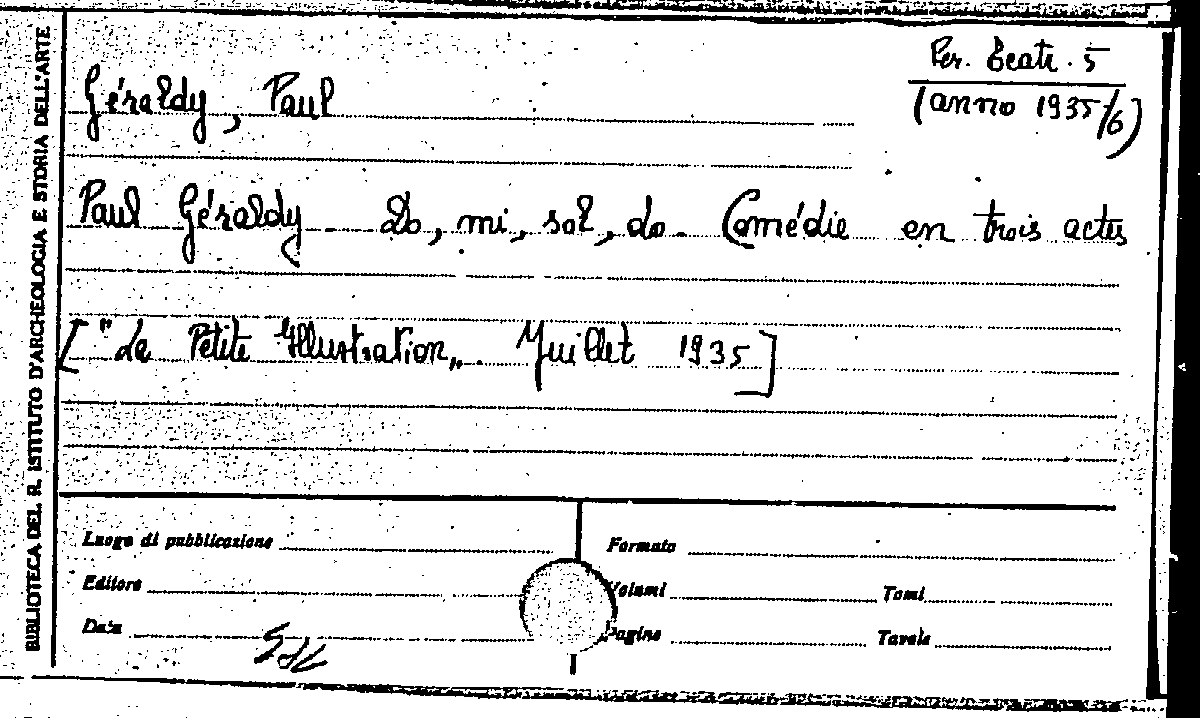 BIBLIOTECA DEL R. ISTITUTO D'ARCHEOLOGIA E STORIA DELL'ARTE
Per. Teatr. 5
(anno 1935/6)
Géraldy, Paul
Paul Géraldy. Do, mi, sol, do. Comédie en trois actes
["La Petite Illustration„. Juillet 1935]
Luogo di pubblicazione
Formato
Editore
Volumi Tomi
Data
Pagine Tavole